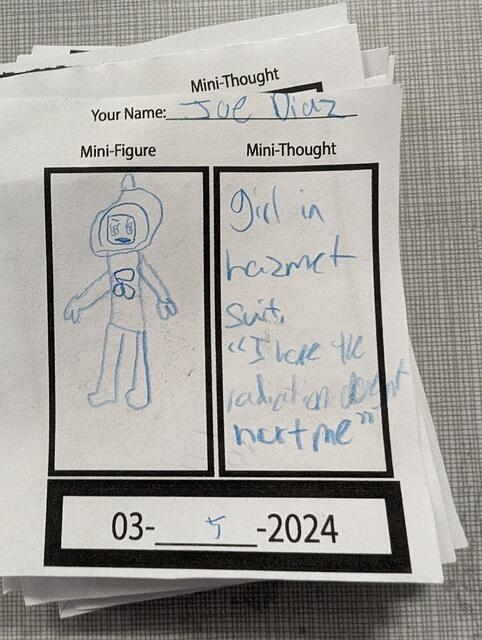 Mini-Thought
Your Name: Joe Diaz
Mini-Figure
Mini-Thought
girl in
hazmet
suit.
"I hope the
radiation doesnt
hurt me"
03- 5 -2024